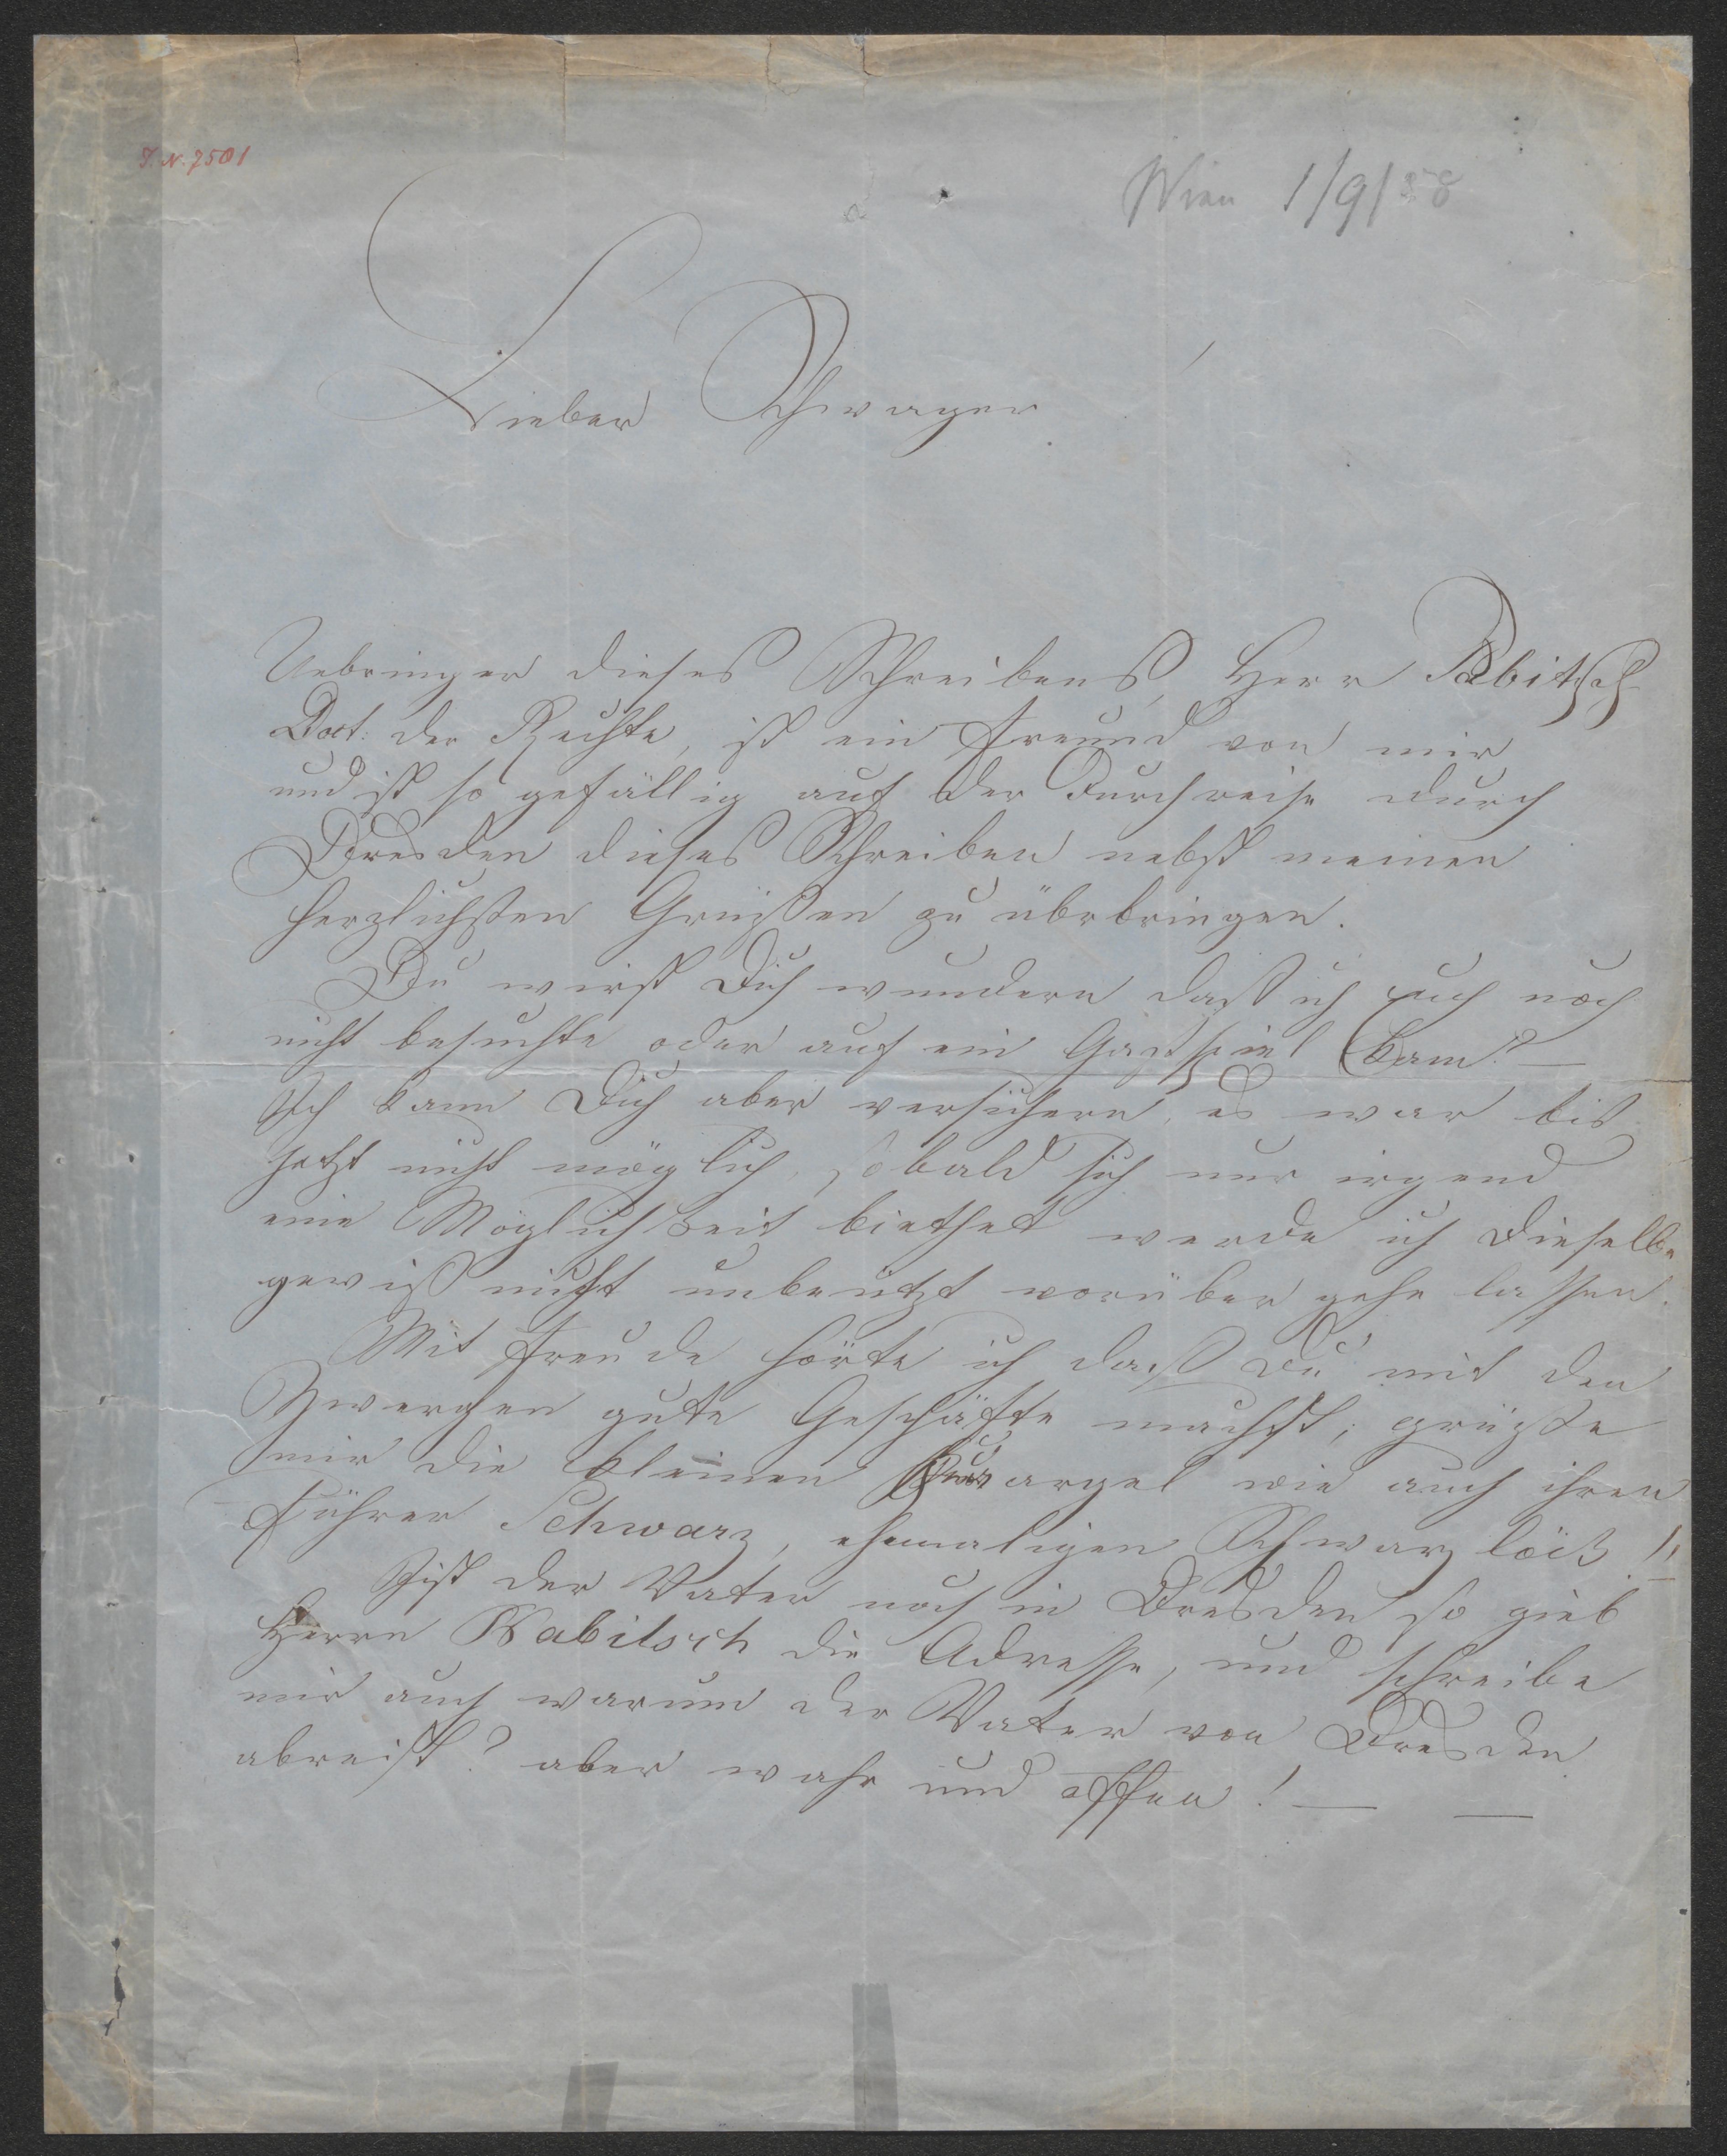 I. N. 7501
Wien 1/9/58
Lieber Schwager
Uebringer dieses Schreibens, Herr Babitsch
Doct. der Rechte, ist ein Freund von mir
und ist so gefällig auf der Durchreise durch
Dresden dieses Schreiben nebst meinen
herzlichsten Grüßen zu übebringen.
Du wirst Dich wundern daß ich euch noch
nicht besuchte oder auf ein Gastspiel kam? —
Ich kann Dich aber versichern, es war bis
jetzt nicht möglich, sobald sich nur irgend
eine Möglichkeit biethet werde ich dieselbe
gewiß nicht unbenützt vorüber gehe lassen.
Mit Freude hörte ich daß Du mit den
Zwergen gute Geschäfte machst; grüße
mir die kleinen wie auch ihren
Führer Schwarz, ehemaligen !!
Ist der Vater noch in Dresden so gieb
Herrn Babitsch die Adresse, und schreibe
mir auch warum der Vater von Dresden
abreist? aber wahr und offen! — —